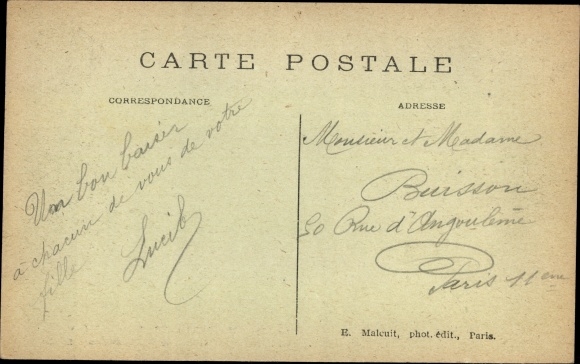 CARTE POSTALE
CORRESPONDANCE
Un bon baiser
à chacun de vous de votre
fille
Lucile
ADRESSE
Monsieur et Madame
Buisson
50 Rue d'Angoulême
Paris 11eme
E. Malcuit, phot. édit., Paris.